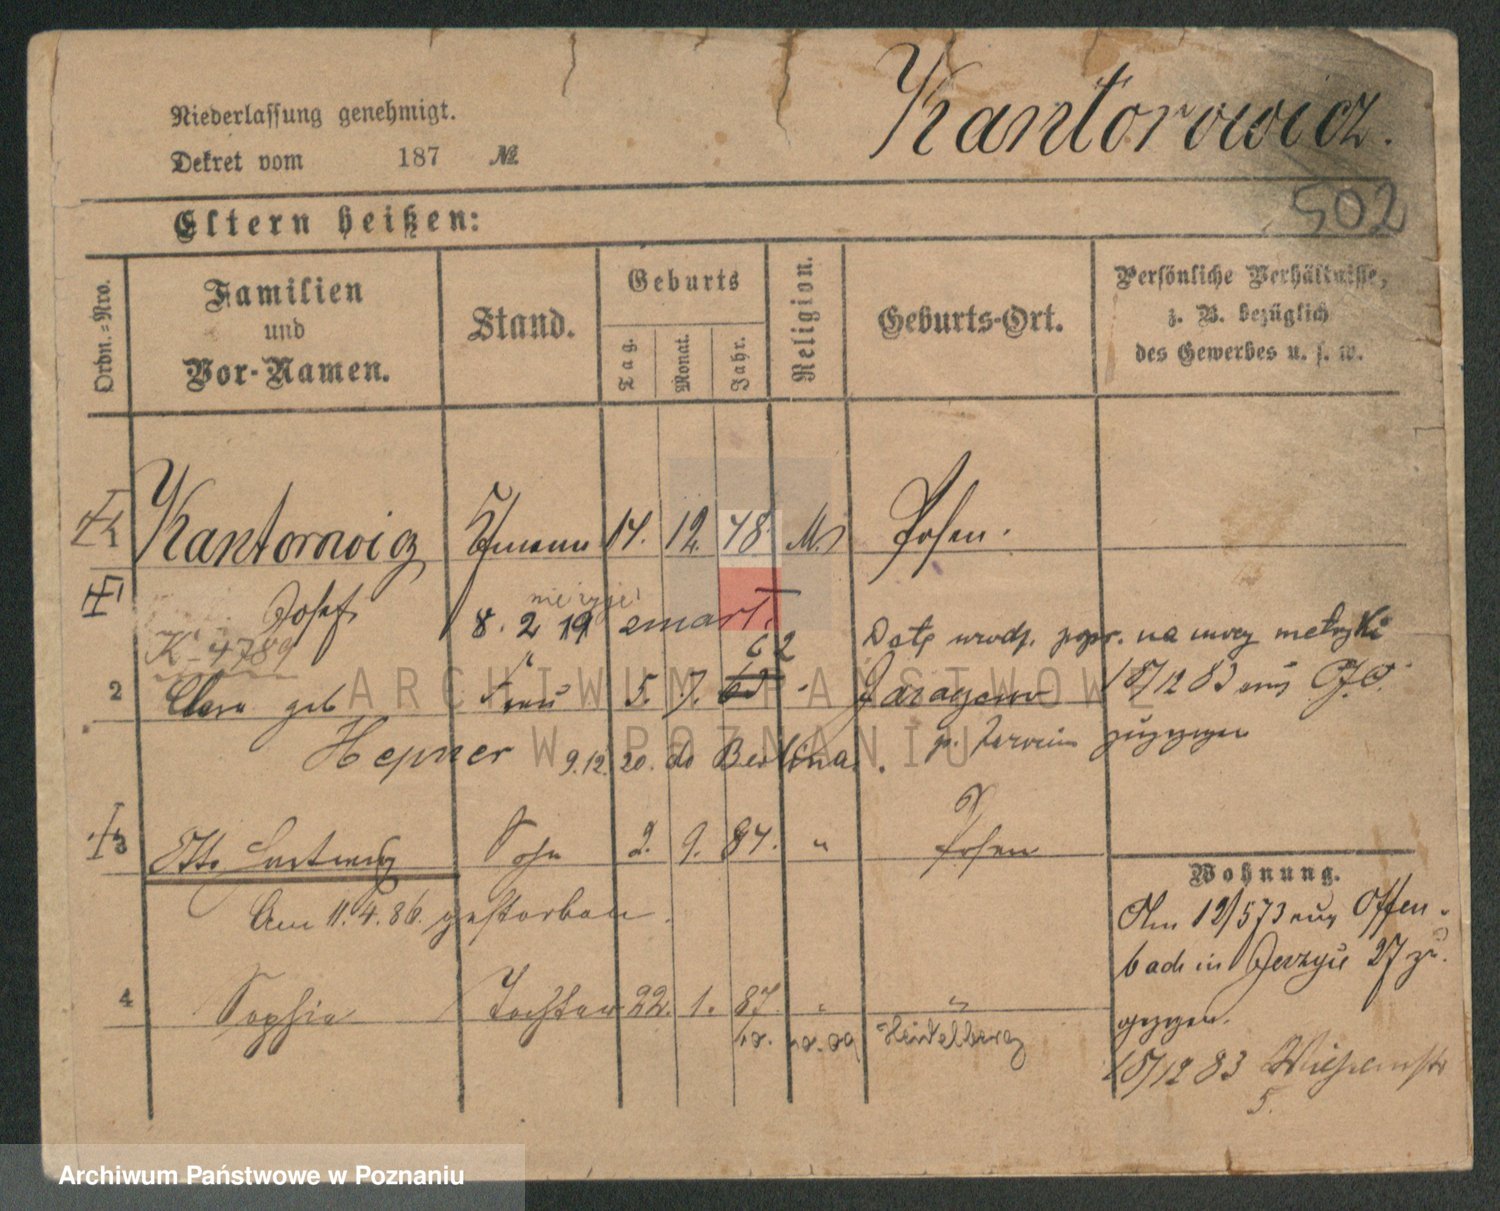 Niederlassung genehmigt.
Kantorowicz.
Dekret vom 187 №
502
Eltern heißen:
Ordn.=Nro.
Familien
und
Vor-Namen.
Stand.
Geburts
Tag.
Monat.
Jahr.
Religion.
Geburts-Ort.
Persönliche Verhältnisse,
z. B. bezüglich
des Gewerbes u. s. w.
1 Kantorowicz Kfmann 14. 12. 48. M. Posen.
Josef nie żyje!
8. 2 19 zmarł.
K-4789
62
na metryki
2 Clara geb Frau 5. 7. 18/12 83 aus
Hepner 9.12. 20. do Berlina. zugezogen
3 Otto Sohn 2. 9. 84. " Posen
Am 11.4.86. gestorben.
4 Sophia Tochter 22. 1. 87. " "
Heidelberg
Wohnung.
12/5 73 aus Offen-
bach in 27 zu-
gezogen.
18/12 83
5.
ARCHIWUM PAŃSTWOWE
W POZNANIU
Archiwum Państwowe w Poznaniu